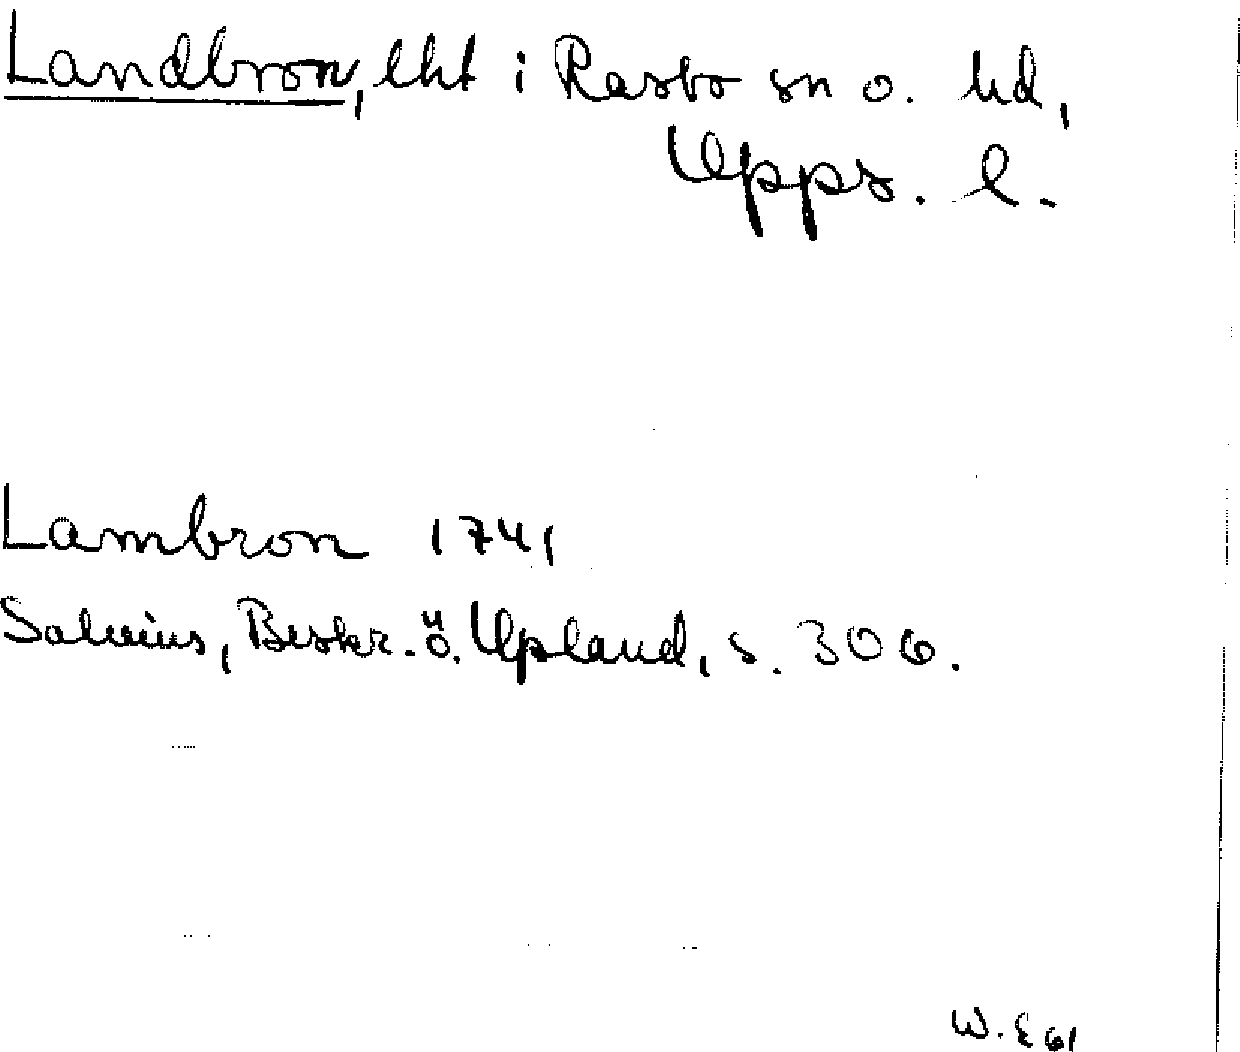 Landbron, lht i Rasbo sn o. hd,
Upps. l.
Lambron 1741
Salvius, Beskr. ö. Upland, s. 306.
W. E 61